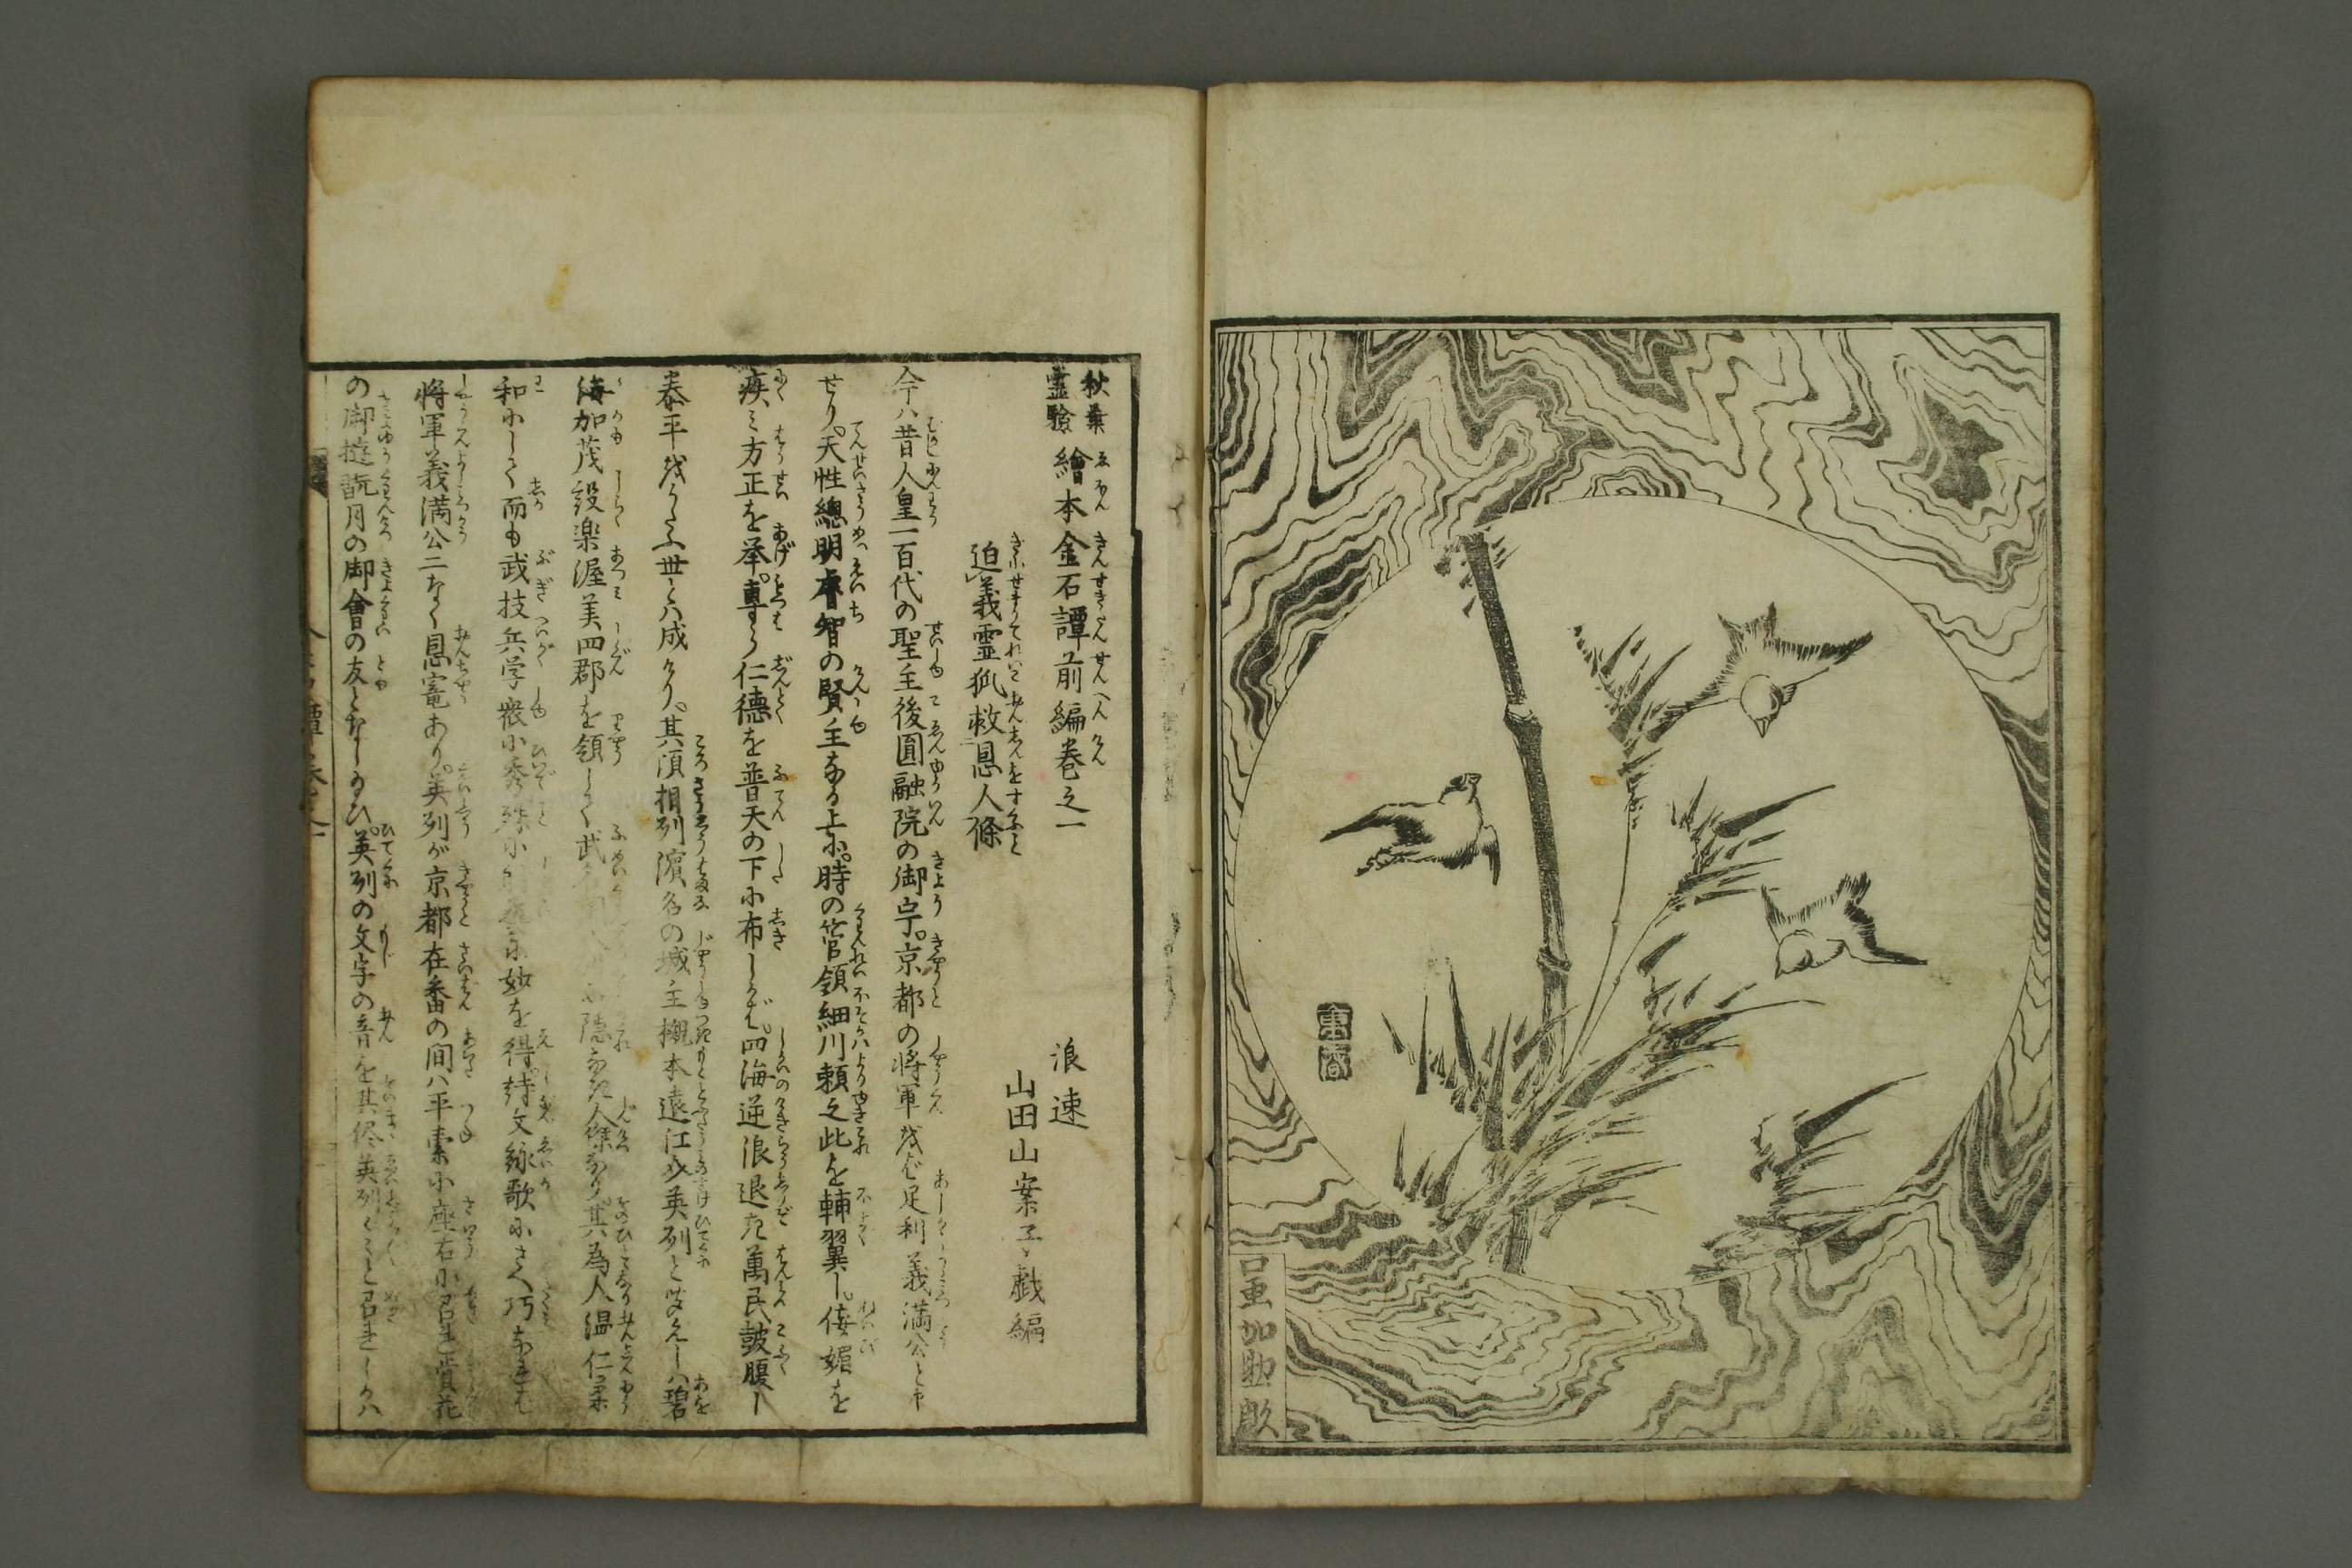 吕重加助彫
秋葉
霊験
繪本金石譚前編巻之一
浪速
山田山案子戯編
迫義霊狐救恩人條
今ハ昔人皇一百代の聖主後圓融院の御宇。京都の将軍をば足利義満公と申
せり。天性總明睿智の賢主なる上に。時の管領細川頼之此を輔翼し。侫媚を
疾ミ方正を挙。専ら仁徳を普天の下に布しかば。四海逆浪退き萬民皷腹し
泰平をうたふ世とハ成けり。其頃相列濵名の城主橳本遠江介英列と聞えしハ碧
海加茂設楽渥美四郡を領して武 隠なき人傑なり。其為人温仁柔
和にして而も武技兵学衆に秀殊に 妙を得。詩文詠歌にさへ巧なれば
将軍義満公二なく恩寵あり。英列が京都在番の間ハ平素に座右に召れ賞花
の御遊翫月の御會の友となし給ひ。英列の文字の音を其侭英列とこそ召れしかハ